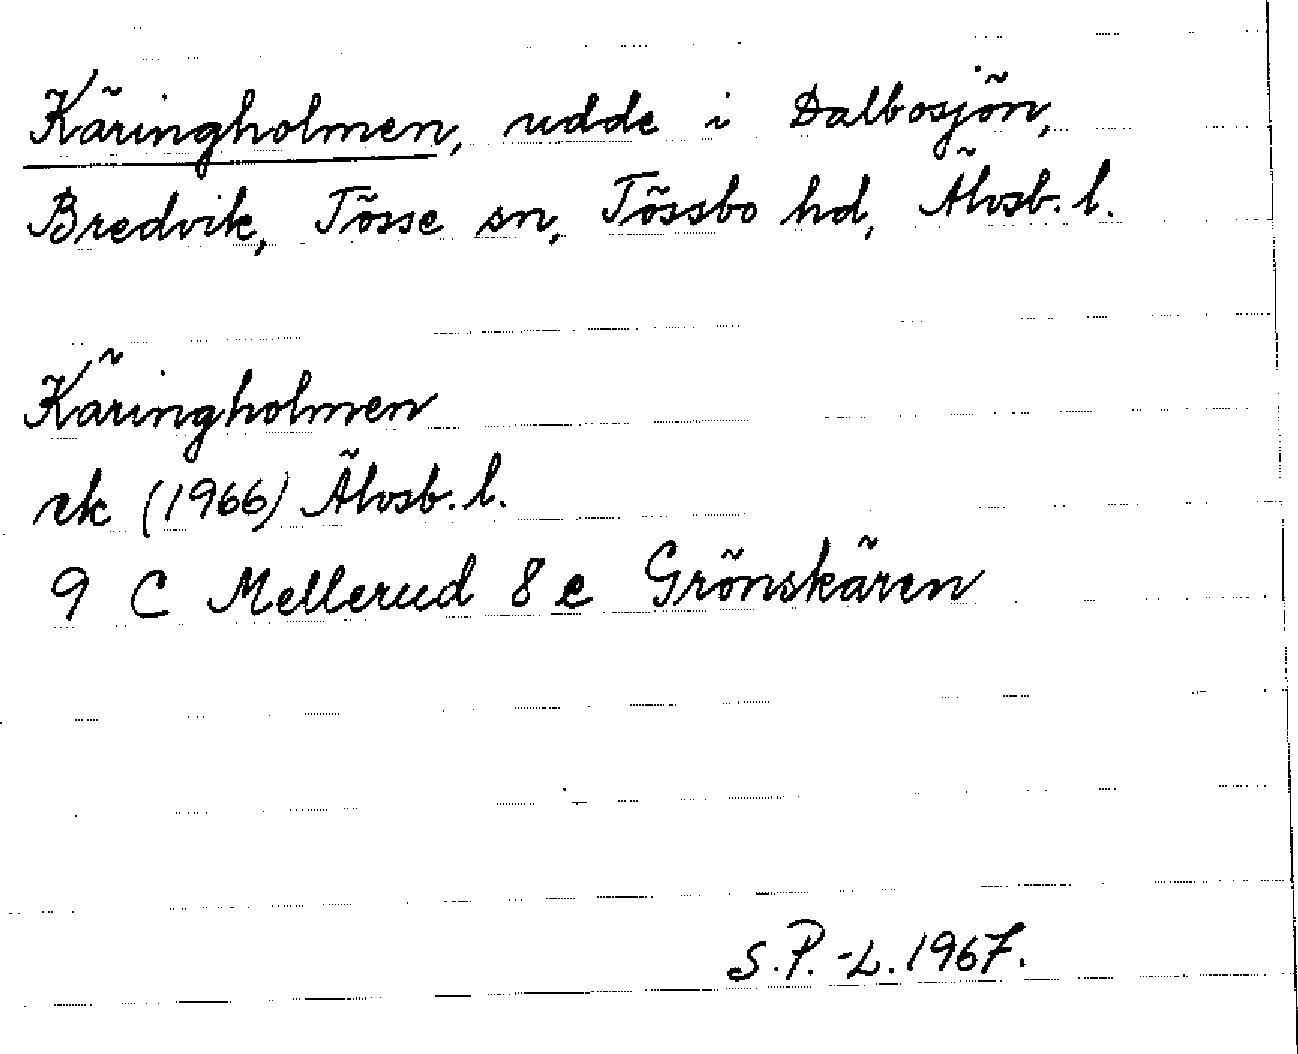 Käringholmen, udde i Dalbosjön,
Bredvik, Tösse sn, Tössbo hd, Älvsb. l.
Käringholmen
rk (1966) Älvsb. l.
9 C Mellerud 8 e Grönskären
S.P.-L. 1967.